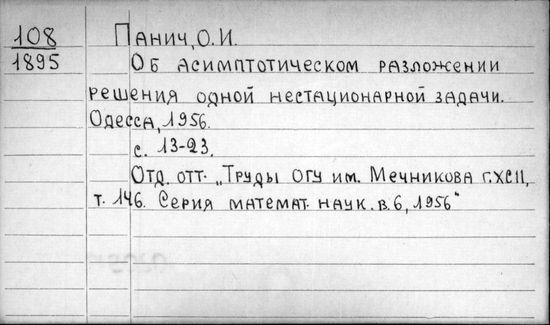 108
1895
Панич, О.И.
Об асимптотическом разложении
решения одной нестационарной задачи.
Одесса, 1956.
с. 13-23.
Отд. отт. „Труды ОГУ им. Мечникова г. XCII,
т. 146. Серия математ. наук. в. 6, 1956"